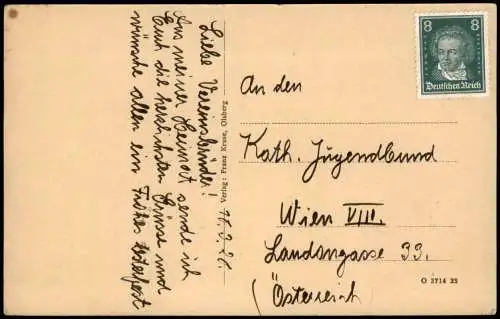 8 8
Deutsches Reich
Liebe Vereinsbrüder!
Aus meiner Heimat sende ich
Euch die herzlichsten Grüsse und
wünsche allen ein Frohes Osterfest
Verlag: Franz Kruse, Olsberg
An den
Kath. Jugendbund
Wien VIII.
Landongasse 33.
(Österreich
O 3714 25